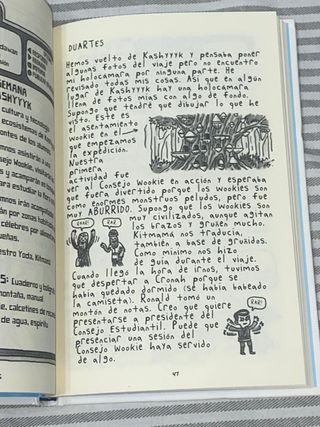 DUARTES
Hemos vuelto de Kashyyyk y pensaba poner
algunas fotos del viaje pero no encuentro
mi holocámara por ninguna parte. He
revisado todas mis cosas. Así que en algún
lugar de Kashyyyk hay una holocámara
llena de fotos mías con algo de fondo.
Supongo que tendré que dibujar lo que he
visto. Este es
el asentamiento
wookie en el
que empezamos
la expedición.
Nuestra
primera
actividad fue
ver al Consejo Wookie en acción y esperaba
que fuera divertido porque los wookies son
como enormes monstruos peludos, pero fue
MUY ABURRIDO. Supongo que los Wookies son
muy civilizados, aunque agitan
los brazos y gruñen mucho.
Kitmamá nos traducía,
también a base de gruñidos.
Como mínimo nos hizo
de guía durante el viaje.
Cuando llegó la hora de irnos, tuvimos
que despertar a Cronah porque se
había quedado dormido (se había babeado
la camiseta). Ronald tomó un
montón de notas. Creo que quiere
presentarse a presidente del
Consejo Estudiantil. Puede que
presenciar una sesión del
Consejo Wookie haya servido
de algo.
RAR!
RAR!
RAR!
47
SEMANA
ASHYYYK
cultura y
ecosistemas de
montes de los
Consejo Wookie,
y acampar
estudiar la
irán acampar
por zonas
célebres por
Yoda, Kitmamá
5: Cuaderno y
montaña,
manual
calcetines de
de agua, espíritu